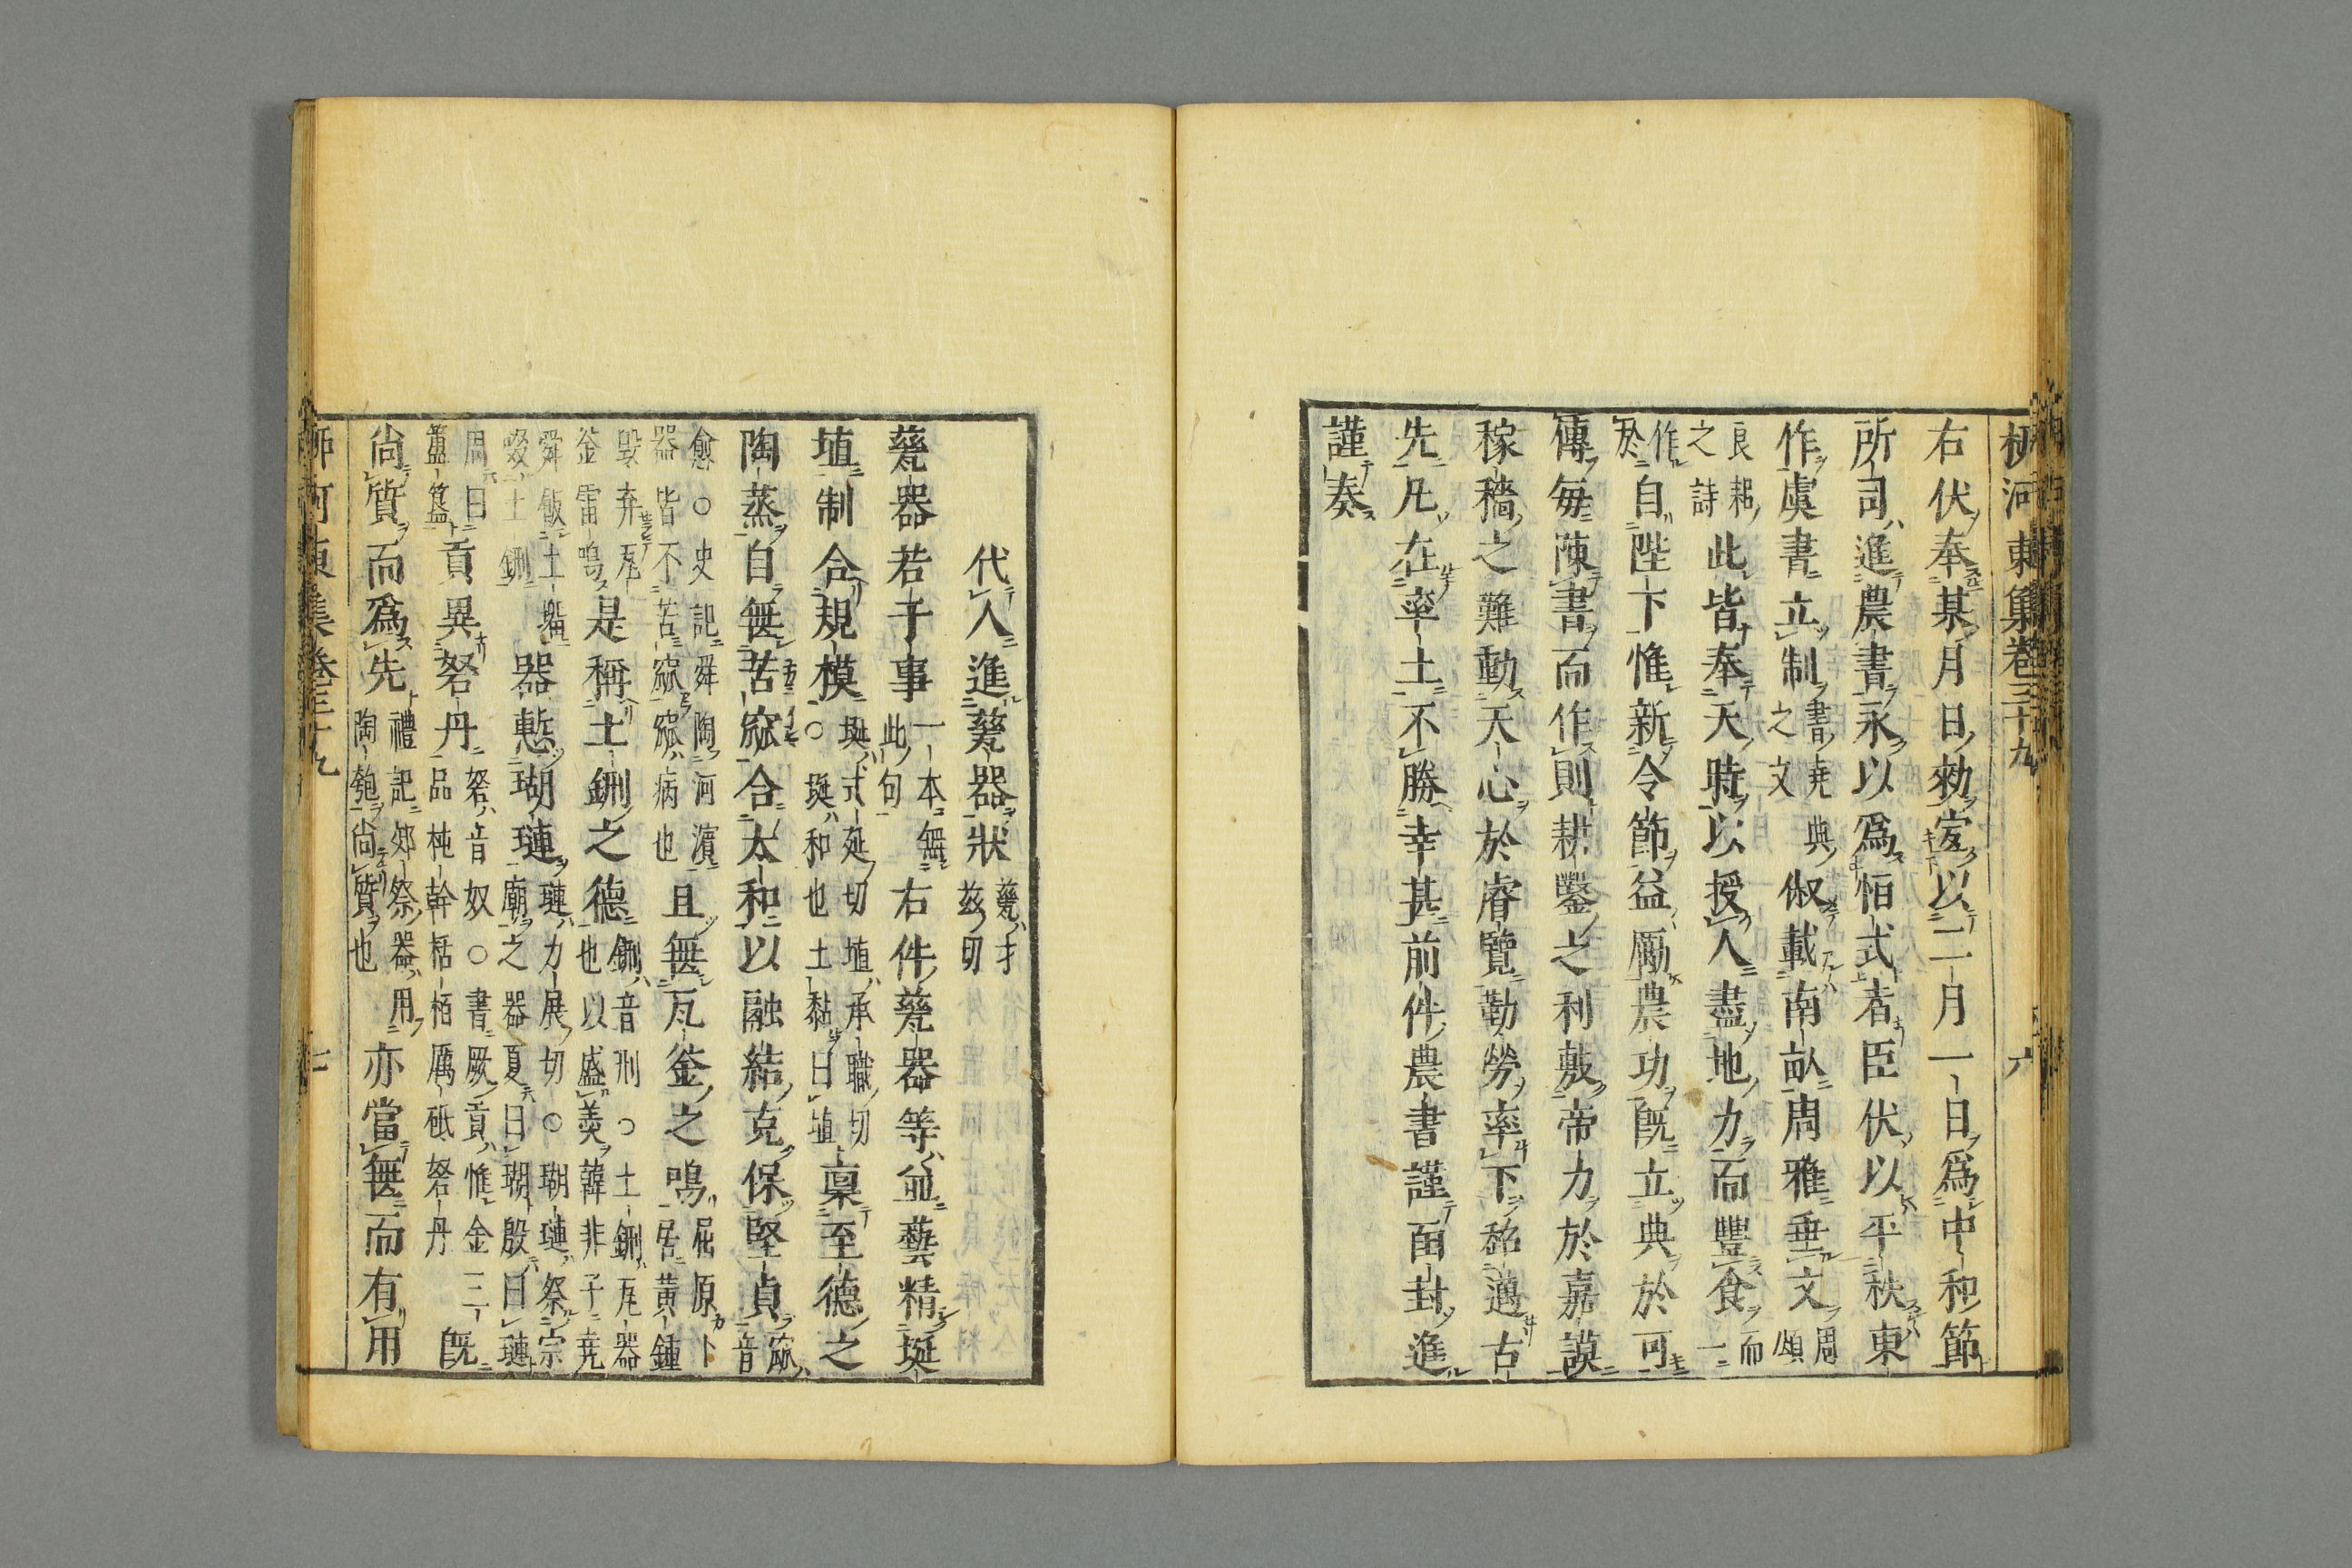 柳河東集卷三十九　六
右伏奉某月日勑㝎以二月一日爲中和節
所司進農書永以爲恒式者臣伏以平秩東
作虞書立制書堯典之文俶載南畝周雅垂文周頌
良耜之詩此皆奉天時以授人盡地力而豐食而一
作於自陛下惟新令節益勵農功旣立典於可
傳每陳書而作則耕鑿之利敷帝力於嘉謨
稼穡之難動天心於睿覽勤勞率下超邁古
先凡在率土不勝幸甚前件農書謹函封進
謹奏
代人進甆器狀甆才茲切
甆器若干事一本無此句右件甆器等並藝精埏
埴制合規模埏式延切埴承職切○埏和也土黏曰埴稟至德之
陶蒸自無苦窳合太和以融結克保堅貞窳音
愈○史記舜陶河濱器皆不苦窳窳病也且無瓦釜之鳴屈原卜居黃鍾
毀弃瓦釜雷鳴是稱土鉶之德鉶音刑○土鉶瓦器也以盛羹韓非子堯
舜飯土塯啜土鉶器慙瑚璉璉力展切○瑚璉祭宗廟之器夏曰瑚殷曰璉
周曰簠簋貢異砮丹砮音奴○書厥貢惟金三品杶幹栝栢厲砥砮丹旣
尚質而爲先禮記郊祭器用陶匏尚質也亦當無而有用
柳河東集卷三十九　七